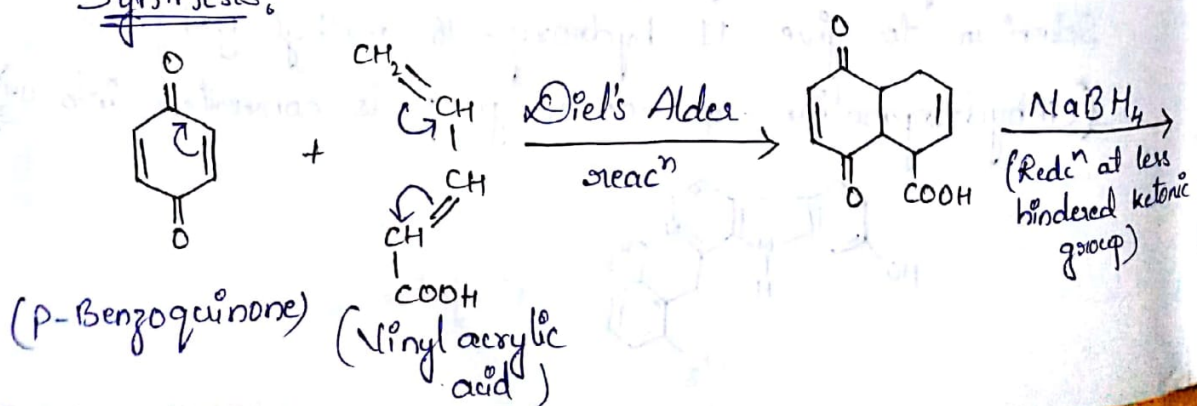 Synthesis:
O
O
(P-Benzoquinone)
+
CH2
CH
CH
CH
COOH
(Vinyl acrylic
acid)
Diel's Alder
reacn
O
O
COOH
NaBH4
(Redcn at less
hindered ketonic
group)